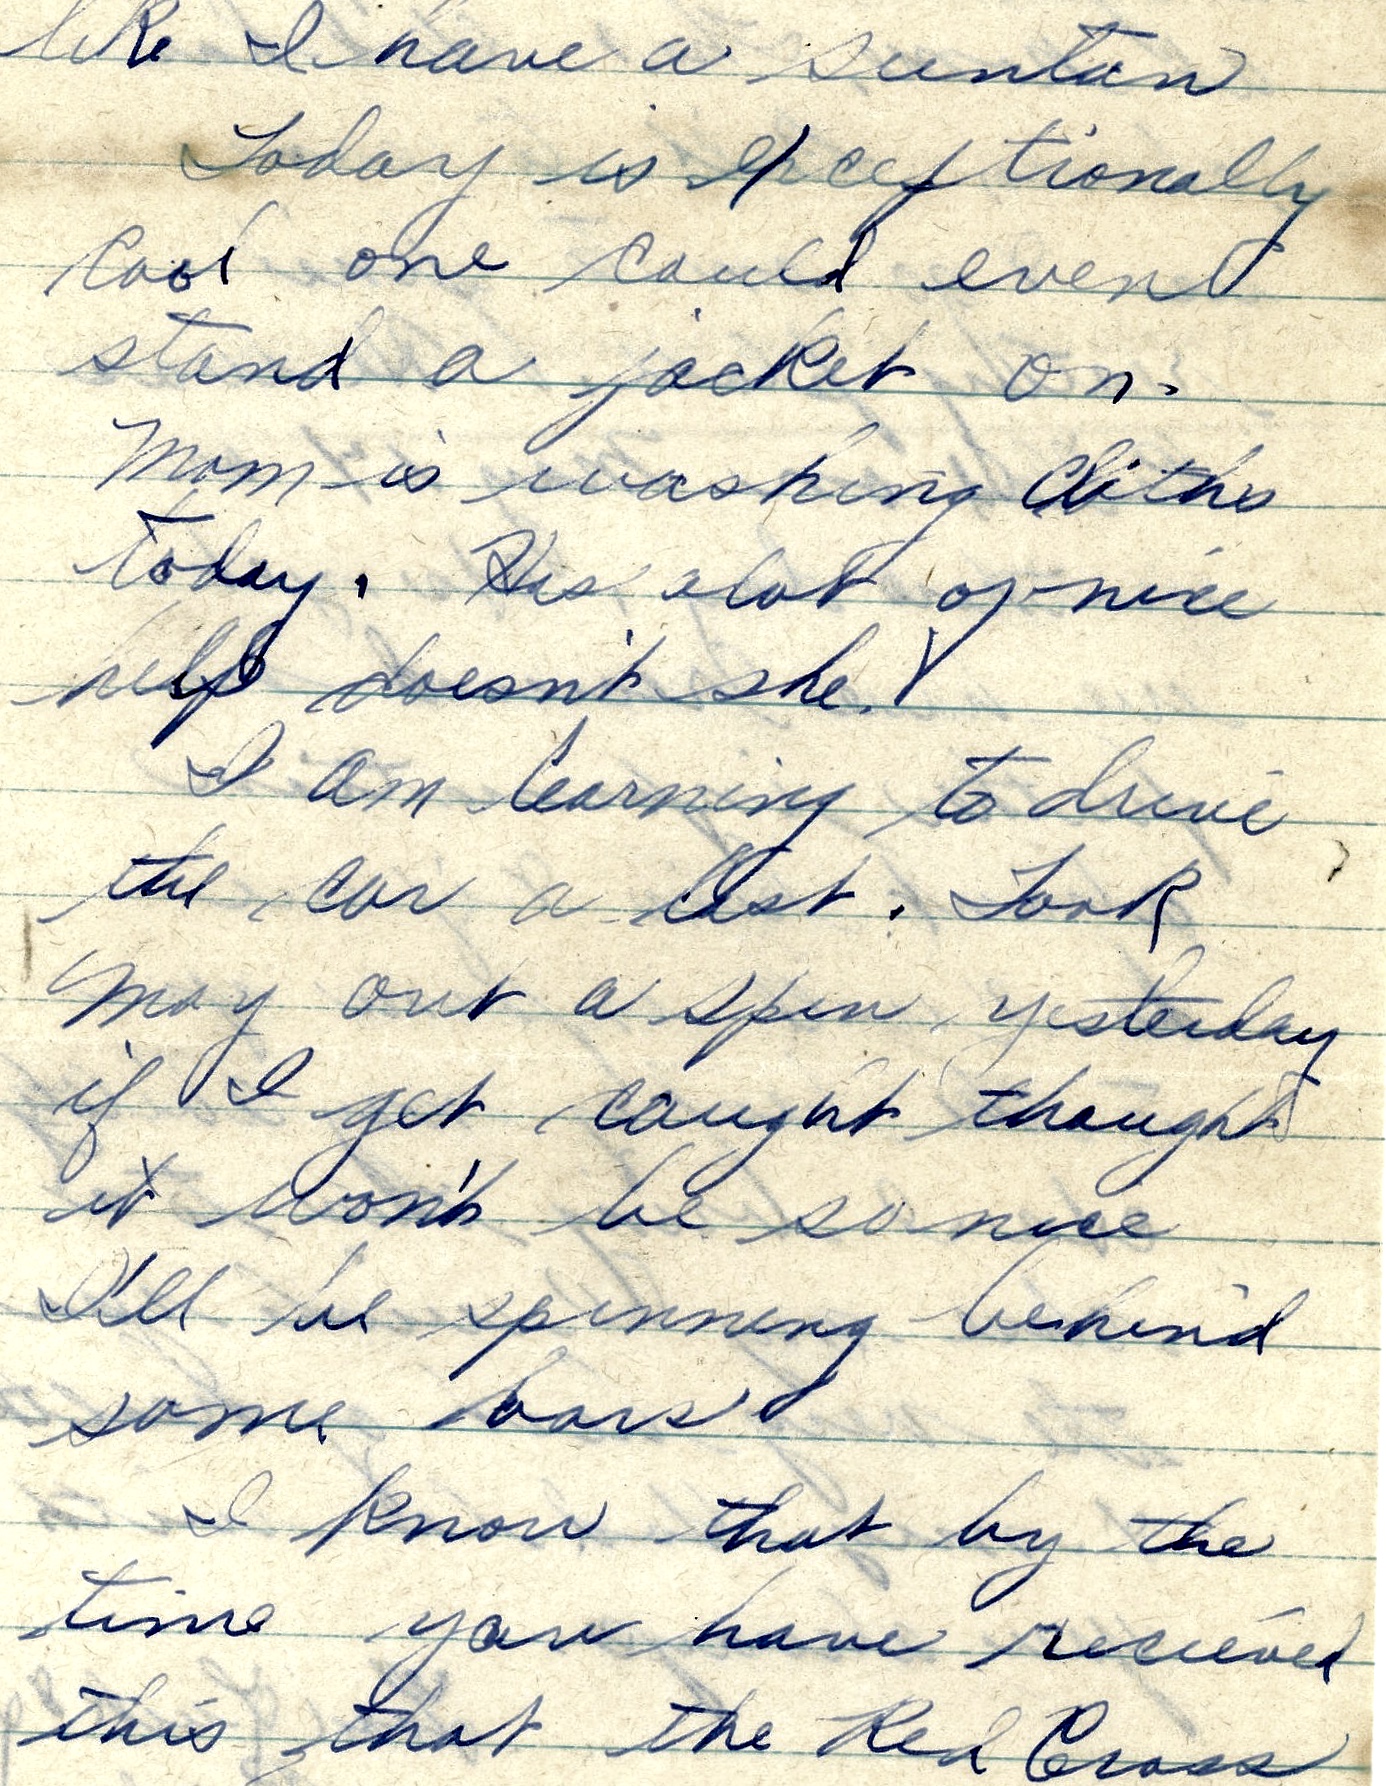 like I have a suntan
Today is exceptionally
cool one could even
stand a jacket on.
Mom is washing cloths
today. Has alot of nice
help doesn't she!
I am learning to drive
the car a last. Took
May out a spin yesterday
if I get caught thought
it won't be so nice
I'll be spinning behind
some bars!
I know that by the
time you have recieved
this that the Red Cross